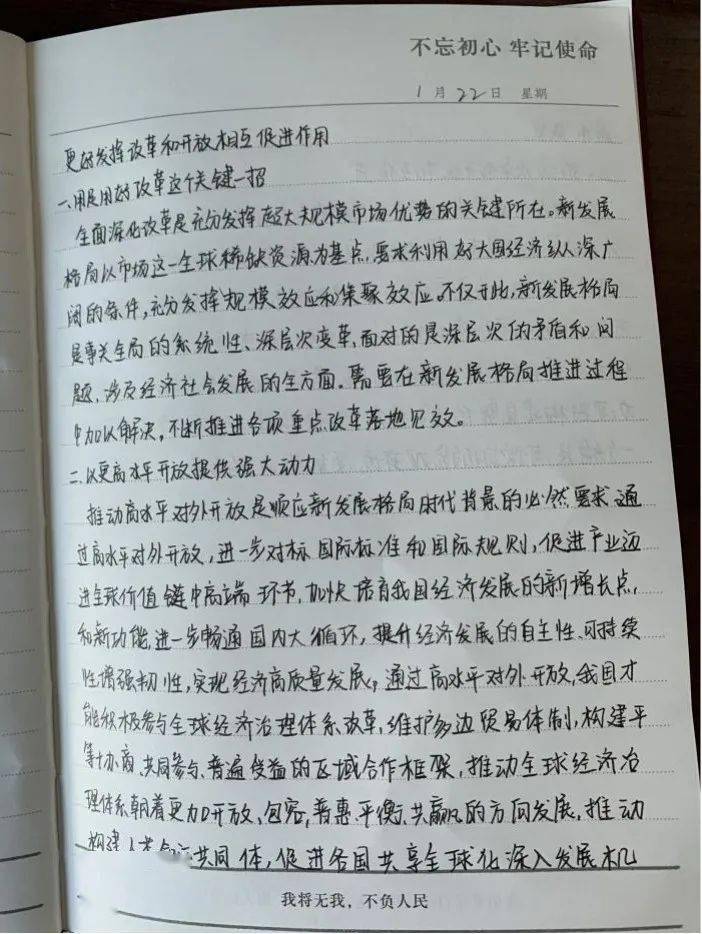 不忘初心 牢记使命
1月22日 星期
更好发挥改革和开放相互促进作用
一、用足用好改革这个关键一招
全面深化改革是充分发挥超大规模市场优势的关键所在。新发展
格局以市场这一全球稀缺资源为基点,要求利用好大国经济纵深广
阔的条件,充分发挥规模效应和集聚效应。不仅于此,新发展格局
是事关全局的系统性、深层次变革,面对的是深层次的矛盾和问
题,涉及经济社会发展的全方面。需要在新发展格局推进过程
中加以解决,不断推进各项重点改革落地见效。
二、以更高水平开放提供强大动力
推动高水平对外开放是顺应新发展格局时代背景的必然要求,通
过高水平对外开放,进一步对标国际标准和国际规则,促进产业迈
进全球价值链中高端环节,加快培育我国经济发展的新增长点,
和新功能,进一步畅通国内大循环,提升经济发展的自主性、可持续
性增强韧性,实现经济高质量发展,通过高水平对外开放,我国才
能积极参与全球经济治理体系改革,维护多边贸易体制,构建平
等协商、共同参与、普遍受益的区域合作框架,推动全球经济治
理体系朝着更加开放、包容,普惠、平衡、共赢的方向发展,推动
构建人类命运共同体,促进各国共享全球化深入发展机
我将无我,不负人民